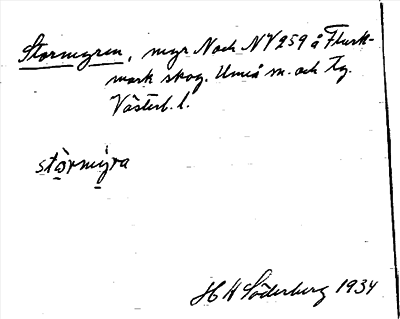 Stormyren, myr N och NV 259 å Flurk-
mark skog. Umeå sn. och tg.
Västerb. l.
stòrmýra
H H Söderberg 1934